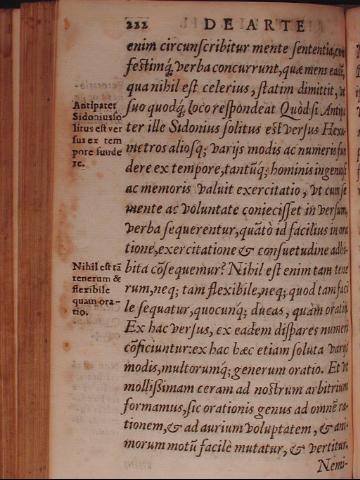 222 DE ARTE
enim circunscribitur mente sententia,
festimq́; verba concurrunt, quæ mens eadē,
qua nihil est celerius, statim dimittit, ut
suo quodq́; loco respondeat Quòd si Antipa
ter ille Sidonius solitus est versus Hexa
metros aliosq; varijs modis ac numeris fun
dere ex tempore, tantūq; hominis ingeniosi
ac memoris valuit exercitatio, vt cum se
mente ac voluntate coniecisset in versum,
verba sequerentur, quātò id facilius in ora
tione, exercitatione & consuetudine adhi
bita cōsequemur? Nihil est enim tam tene
rum, neq; tam flexibile, neq; quod tam faci
le sequatur, quocunq; ducas, quàm oratio.
Ex hac versus, ex eadem dispares numeri
cōficiuntur: ex hac hæc etiam soluta varijs
modis, multorumq; generum oratio. Et vt
mollissimam ceram ad nostrum arbitrium
formamus, sic orationis genus ad omnē ra
tionem, & ad aurium voluptatem, & ani
morum motū facilè mutatur, & vertitur.
Nemi-
Antipater
Sidonius so
litus est ver
sus ex tem
pore funde
re.
Nihil est tā
tenerum &
flexibile
quam ora-
tio.